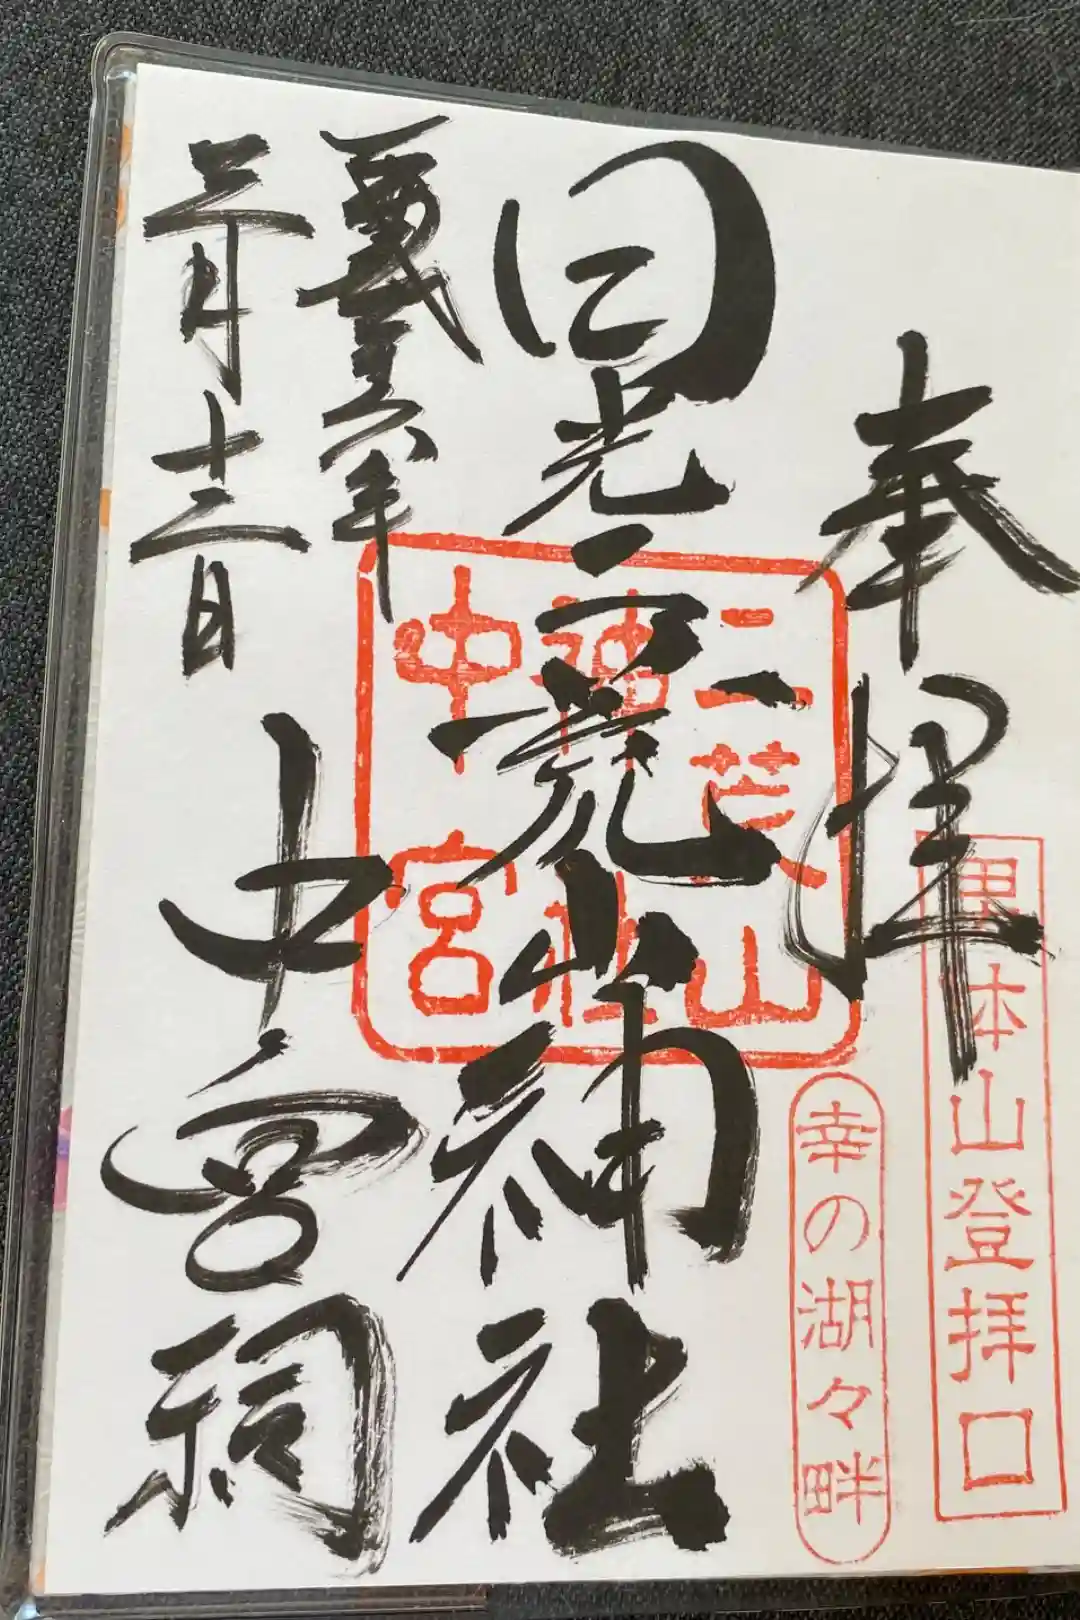 奉拝
男体山登拝口
幸の湖々畔
日光二荒山神社
二荒山
神社
中宮
中宮祠
六年
三月